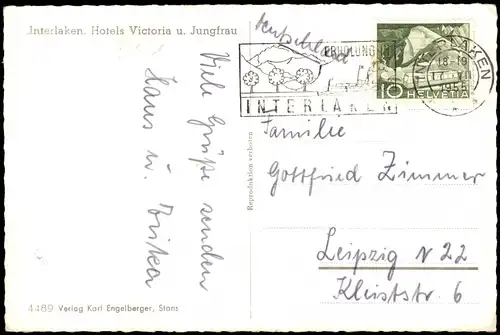 Interlaken. Hotels Victoria u. Jungfrau
Deutschland
ERHOLUNG
INTERLAKEN
10 HELVETIA
18-19
17. VII
1955
Viele Grüße senden
Hans u. Erika
Reproduktion verboten
Familie
Gottfried Zimmer
Leipzig N 22
Kleiststr. 6
4489 Verlag Karl Engelberger, Stans